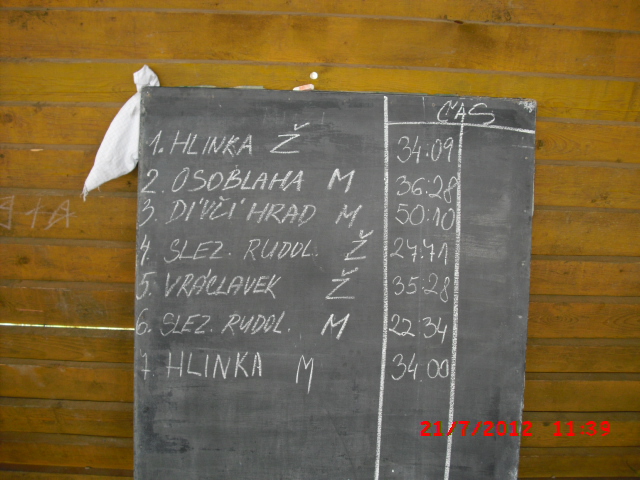 ČAS
1. HLINKA Ž 34:09
2. OSOBLAHA M 36:28
3. DÍVČÍ HRAD M 50:10
4. SLEZ. RUDOL. Ž 27:71
5. VRÁCLAVEK Ž 35:28
6. SLEZ. RUDOL. M 22:34
7. HLINKA M 34:00
21/7/2012 11:39